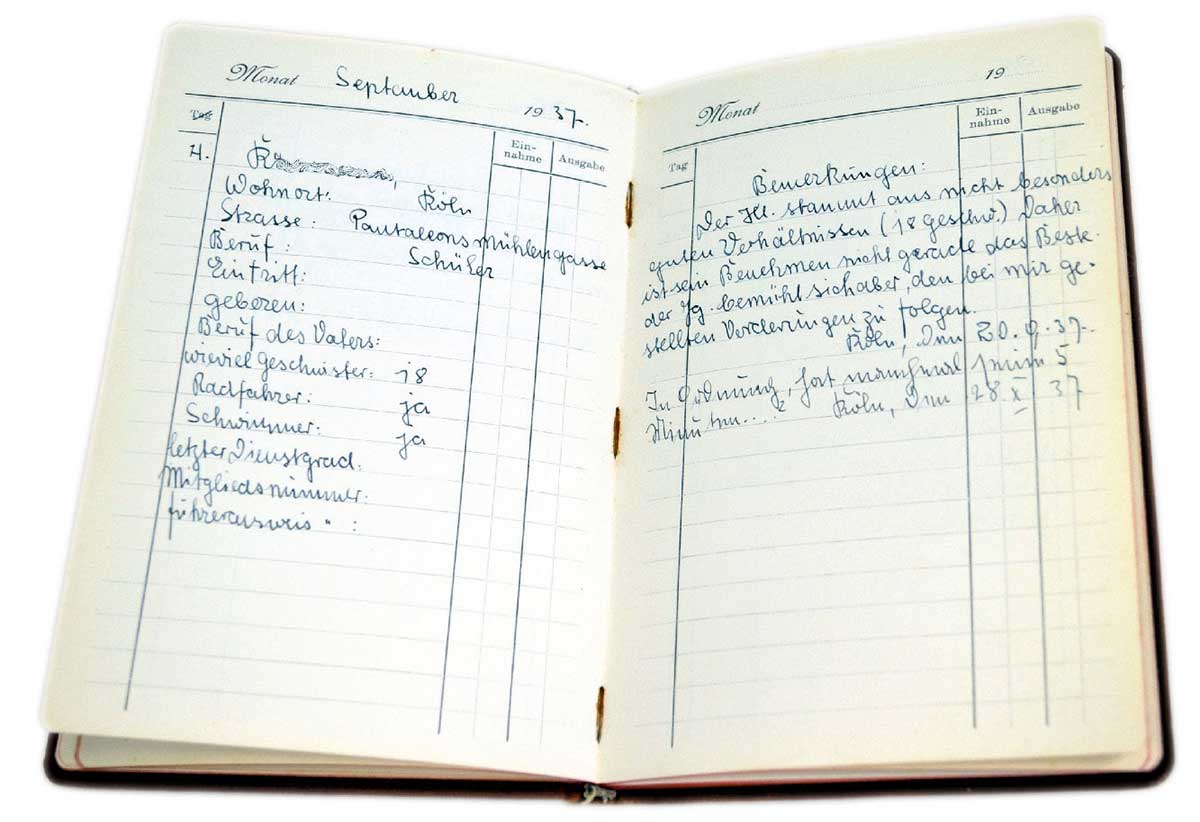 Monat September 1937.
Tag
Ein-
nahme
Ausgabe
4.
K
Wohnort: Köln
Strasse: Pantaleonsmühlengasse
Beruf: Schüler
Eintritt:
geboren:
Beruf des Vaters:
wieviel Geschwister: 18
Radfahrer: ja
Schwimmer: ja
letzter Dienstgrad.
Mitgliedsnummer:
führerausweis " :
Monat 19
Tag
Ein-
nahme
Ausgabe
Bemerkungen:
Der stammt aus nicht besonders
guten Verhältnissen (18 geschw.) Daher
ist sein Benehmen nicht gerade das Beste.
der Jg. bemüht sich aber, den bei mir ge-
stellten Vorderungen zu folgen.
Köln, den 20.9.37.
In Ordnung, hat manchmal 5
Minuten.... Köln, den 28. X 37